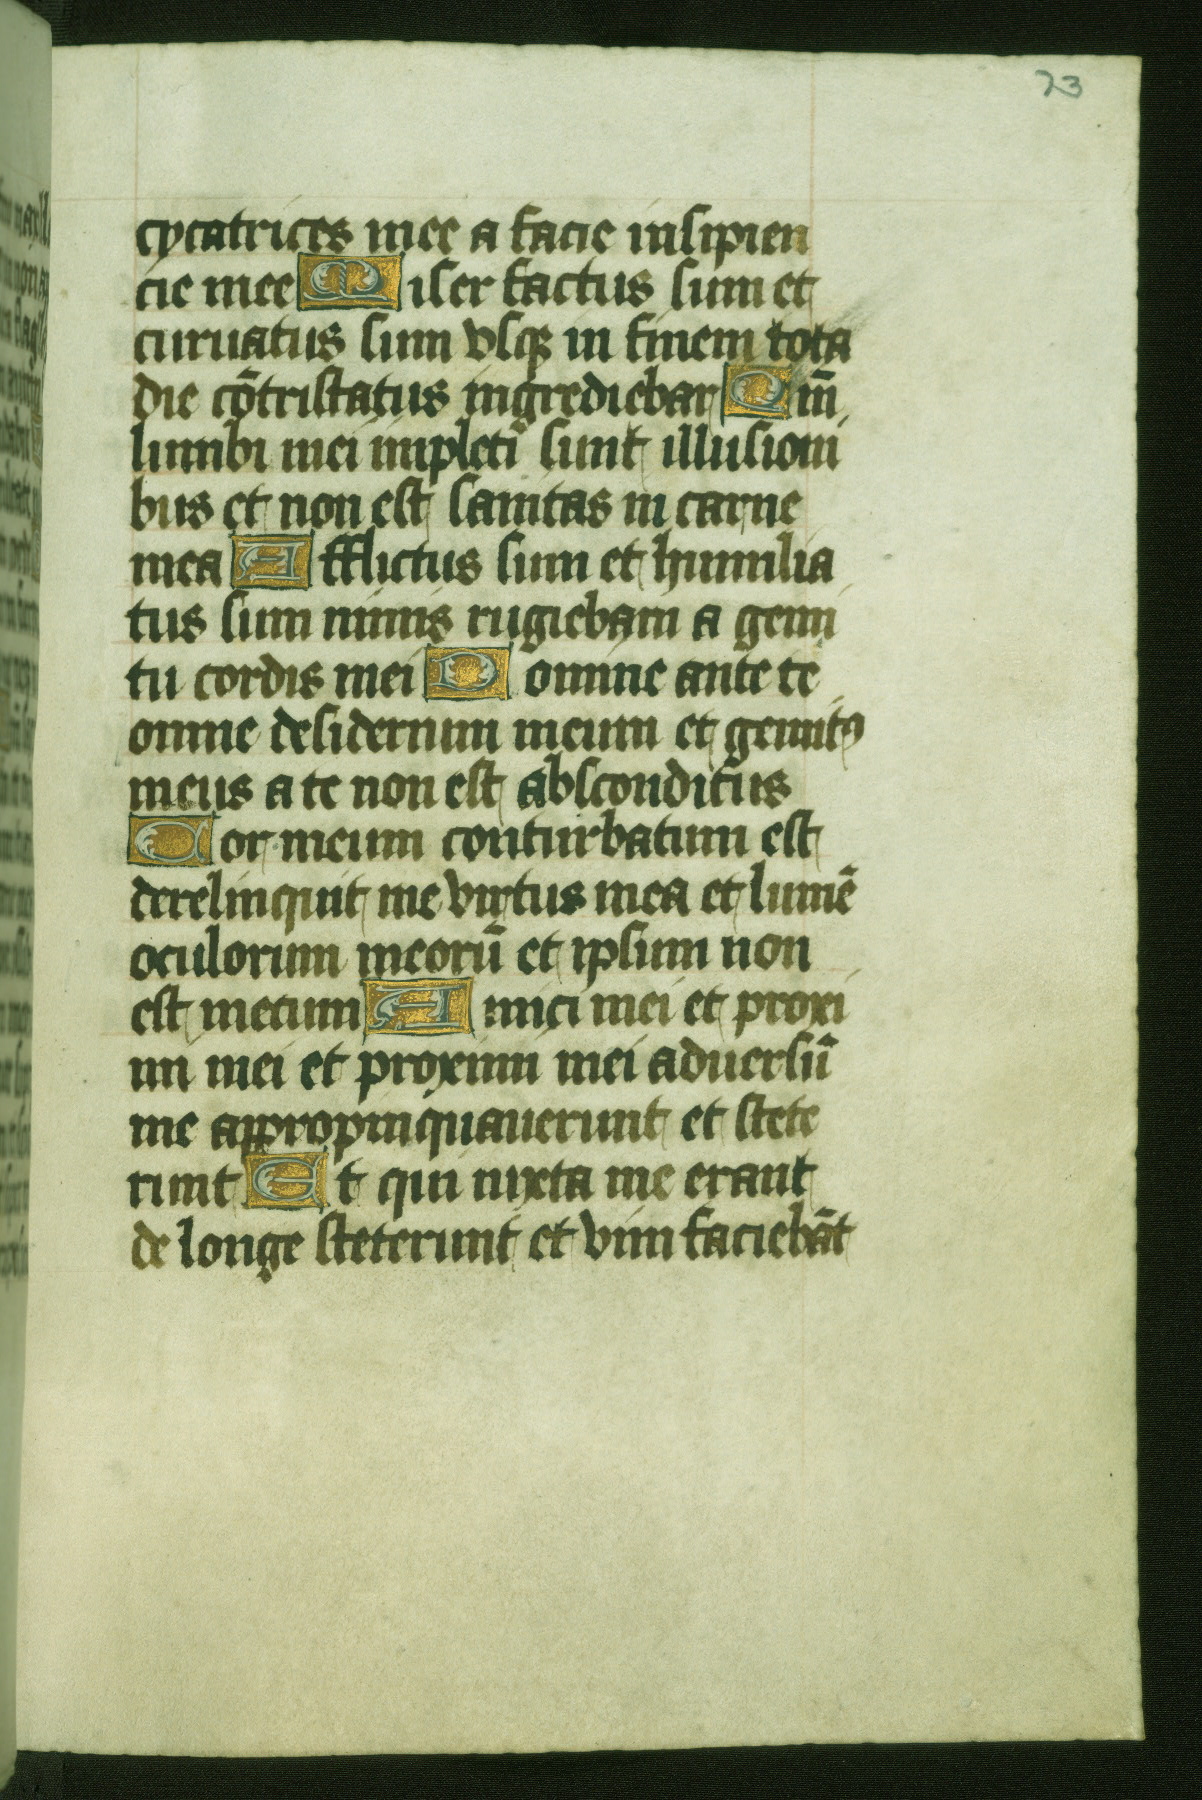 73
cycatrices mee a facie insipien
cie mee Miser factus sum et
curuatus sum vsqꝫ in finem tota
die cōtristatus ingrediebar Qm̄
lumbi mei impleti sunt illusioni
bus et non est sanitas in carne
mea Afflictus sum et humilia
tus sum nimis rugiebam a gemi
tu cordis mei Domine ante te
omne desiderium meum et gemitꝰ
meus a te non est absconditus
Cor meum conturbatum est
derelinquit me virtus mea et lumē
oculorum meorū et ipsum non
est mecum Amici mei et proxi
mi mei et proximi mei aduersū
me appropinquauerunt et stete
runt Et qui iuxta me erant
de longe steterunt et vim faciebāt